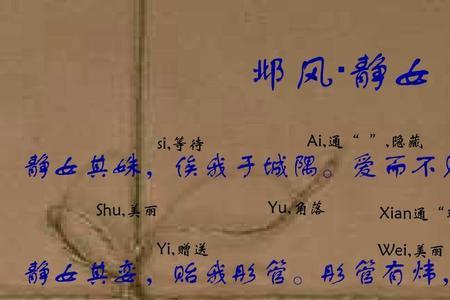 邶风·静女
si,等待 Ai,通“ ”,隐藏
静女其姝，俟我于城隅。爱而不
Shu,美丽 Yu,角落 Xian通“
Yi,赠送 Wei,美丽
静女其娈，贻我彤管。彤管有炜，